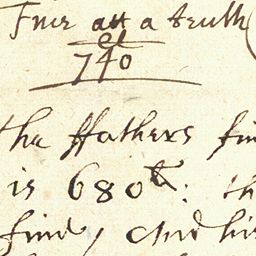 Fine att a tenth
li
740
the ffathers fin
is 680li: th
fine, And his